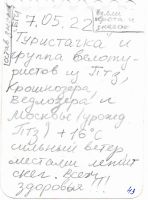 7.05.22
Туристачка и
группа велоту-
ристов из Птз,
Крошнозера,
Ведлозера и
Москвы (урожд
Птз) +16°С
сильный ветер,
местами лежит
снег. Всем
здоровья!!!